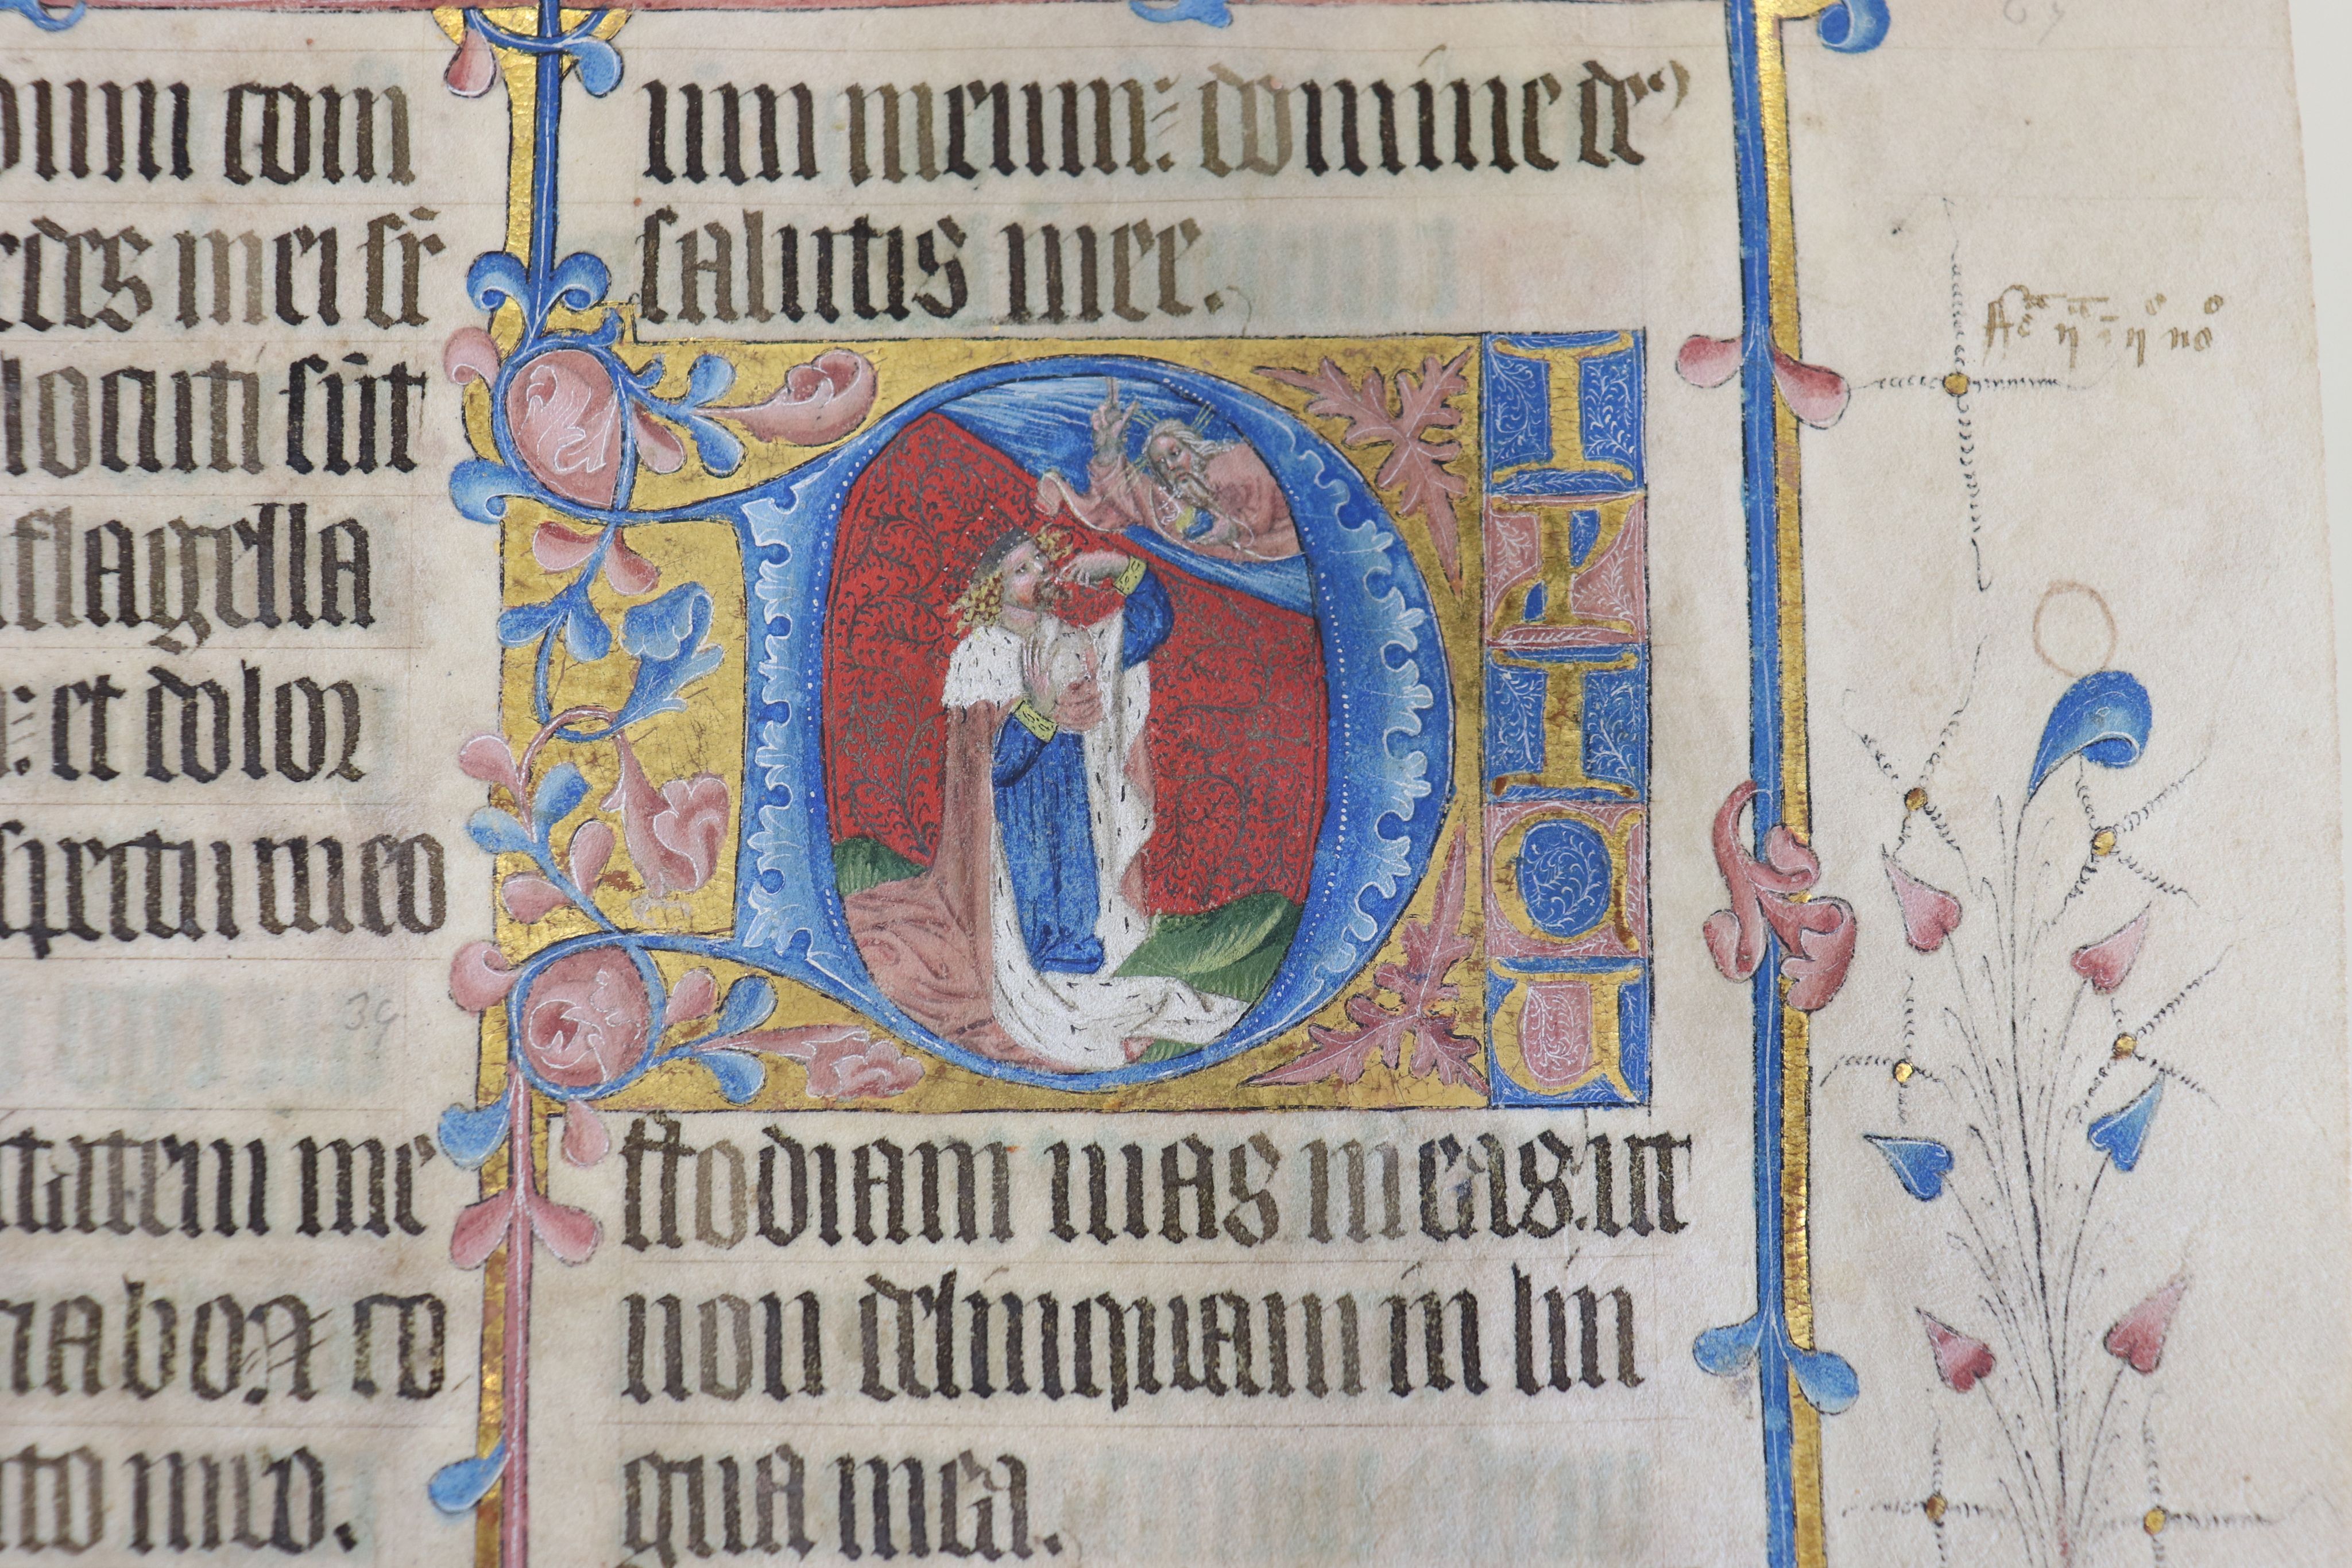 dum com
mei sr̄
locuti sūt
flagella
: et dolor
spectu meo
39
tatem me
ciabo: ⁊ co
to meo.
um meum: domine deꝰ
salutis mee.
D
I
X
I
C
U
stodiam uias meas: ut
non delinquam in lin
gua mea.